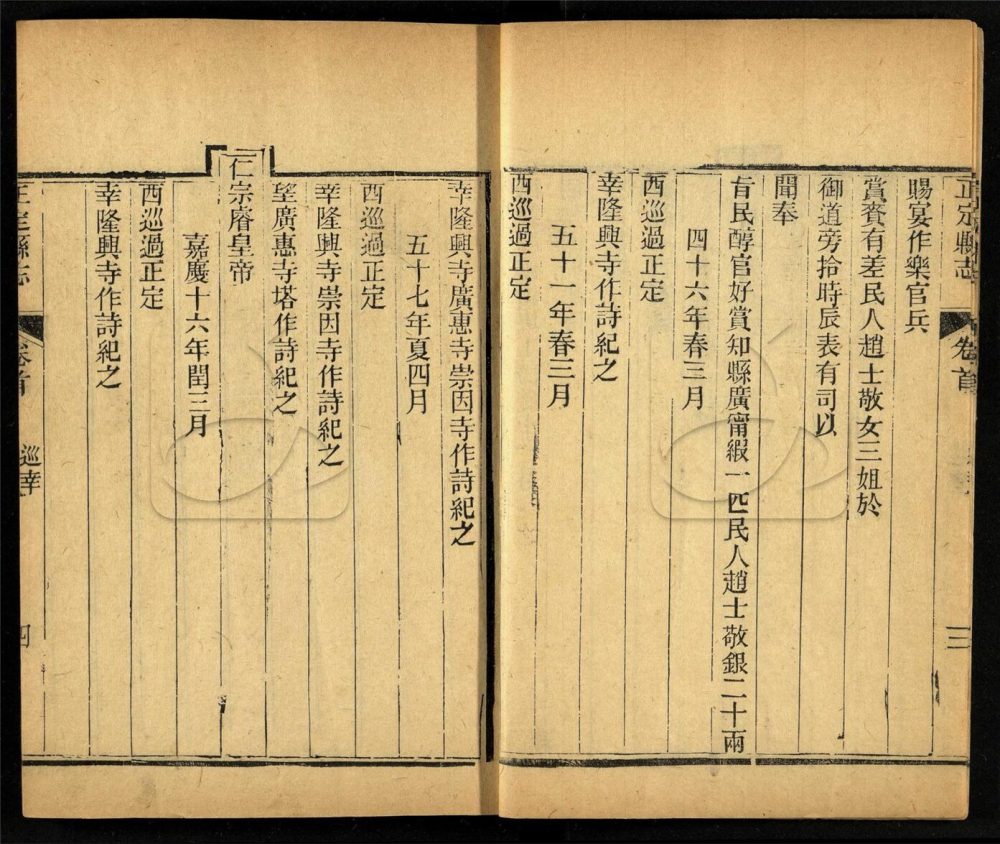 正定縣志
卷首
三
賜宴作樂官兵
賞賚有差民人趙士敬女三姐於
御道旁拾時辰表有司以
聞奉
旨民醇官好賞知縣廣甯緞一匹民人趙士敬銀二十兩
四十六年春三月
西巡過正定
幸隆興寺作詩紀之
五十一年春三月
西巡過正定
幸隆興寺廣惠寺崇因寺作詩紀之
五十七年夏四月
西巡過正定
幸隆興寺崇因寺作詩紀之
望廣惠寺塔作詩紀之
仁宗睿皇帝
嘉慶十六年閏三月
西巡過正定
幸隆興寺作詩紀之
正定縣志
卷首
巡幸
四